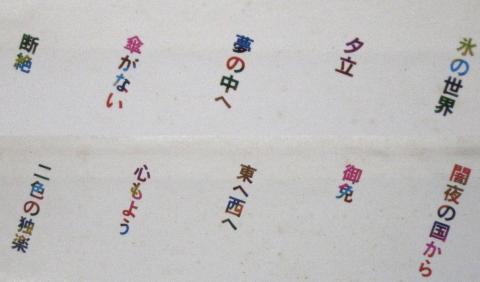 氷の世界
夕立
夢の中へ
傘がない
断絶
闇夜の国から
御免
東へ西へ
心もよう
二色の独楽